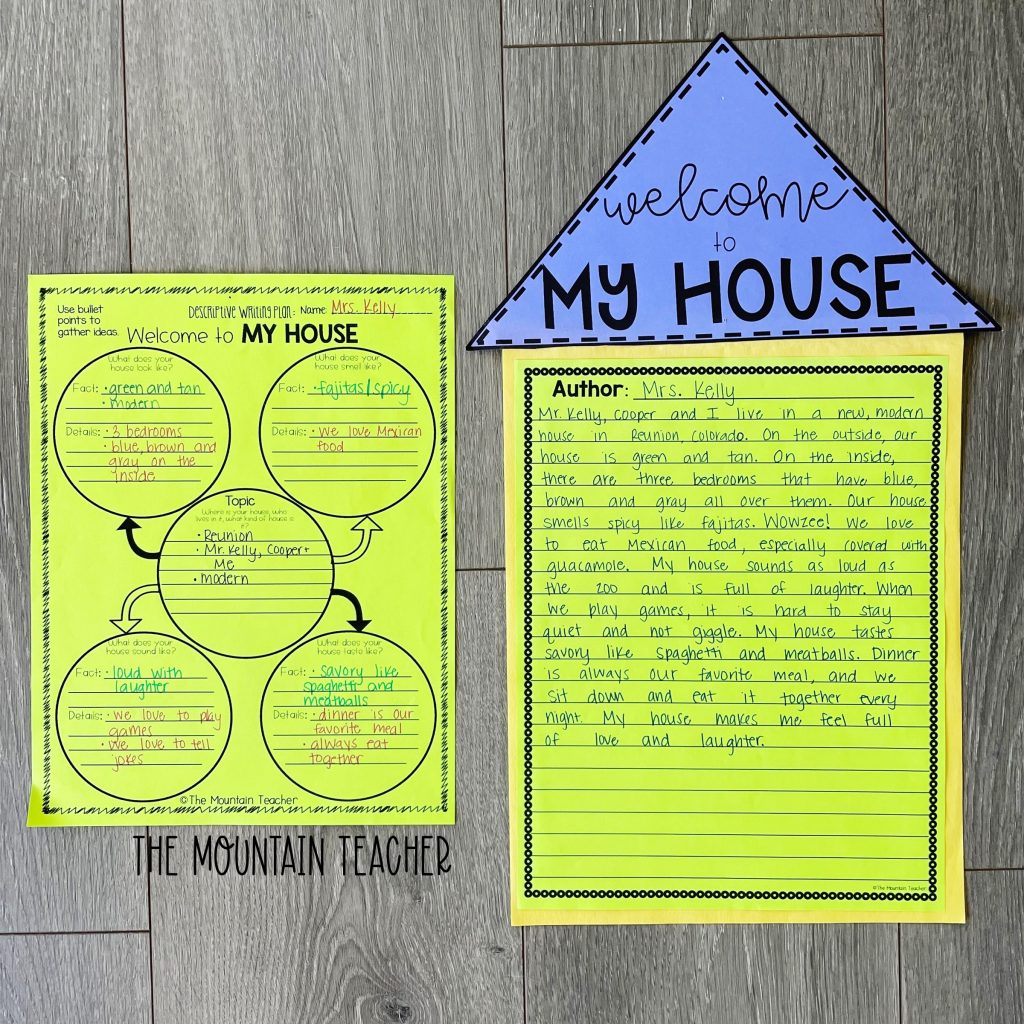 Use bullet
points to
gather ideas.
DESCRIPTIVE WRITING PLAN: Name: Mrs. Kelly
Welcome to MY HOUSE
What does your
house look like?
Fact: • green and tan
• modern
Details: • 3 bedrooms
• blue, brown and
gray on the
inside
What does your
house smell like?
Fact: • fajitas/spicy
Details: • we love Mexican
food
Topic
Where is your house, who
lives in it, what kind of house is
it?
• Reunion
• Mr. Kelly, Cooper +
Me
• modern
What does your
house sound like?
Fact: • loud with
laughter
Details: • we love to play
games
• we love to tell
jokes
What does your
house taste like?
Fact: • savory like
spaghetti and
meatballs
Details: • dinner is our
favorite meal
• always eat
together
©The Mountain Teacher
THE MOUNTAIN TEACHER
welcome
to
MY HOUSE
Author: Mrs. Kelly
Mr. Kelly, Cooper and I live in a new, modern
house in Reunion, Colorado. On the outside, our
house is green and tan. On the inside,
there are three bedrooms that have blue,
brown and gray all over them. Our house
smells spicy like fajitas. Wowzee! We love
to eat Mexican food, especially covered with
guacamole. My house sounds as loud as
the zoo and is full of laughter. When
we play games, it is hard to stay
quiet and not giggle. My house tastes
savory like spaghetti and meatballs. Dinner
is always our favorite meal, and we
sit down and eat it together every
night. My house makes me feel full
of love and laughter.
©The Mountain Teacher